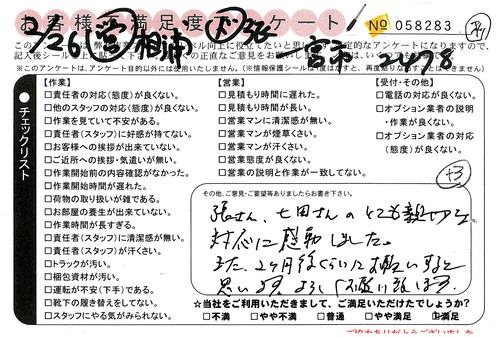 お客様満足度アンケート！
No 058283
2478
【作業】
□責任者の対応(態度)が良くない。
□他のスタッフの対応(態度)が良くない。
□作業を見ていて不安がある。
□責任者(スタッフ)に好感が持てない。
□お客様への挨拶が出来ていない。
□ご近所への挨拶・気遣いが無い。
□作業開始前の内容確認がなかった。
□作業開始時間が遅れた。
□荷物の取り扱いが雑である。
□お部屋の養生が出来ていない。
□作業時間が長すぎる。
□責任者(スタッフ)に清潔感が無い。
□責任者(スタッフ)が汗くさい。
□トラックが汚い。
□梱包資材が汚い。
□運転が不安(下手)である。
□靴下の履き替えをしてない。
□スタッフにやる気がみられない。
【営業】
□見積もり時間に遅れた。
□見積もり時間が長い。
□営業マンに清潔感が無い。
□営業マンが煙草くさい。
□営業マンが汗くさい。
□営業態度が良くない。
□営業の説明と作業が一致してない。
【受付・その他】
□電話の対応が良くない。
□オプション業者の説明
・作業が良くない。
□オプション業者の対応
(態度)が良くない。
●チェックリスト
+3
その他、ご意見・ご要望等ありましたらお書き下さい。
張さん、七田さんのとても親切な
対応に感動しました。
また、2ヶ月後くらいにお願いすると
思います。よろしくお願い致します。
☆当社をご利用いただきまして、ご満足いただけましたでしょうか？
□不満 □やや不満 □普通 □やや満足 □満足
ご協力ありがとうございました